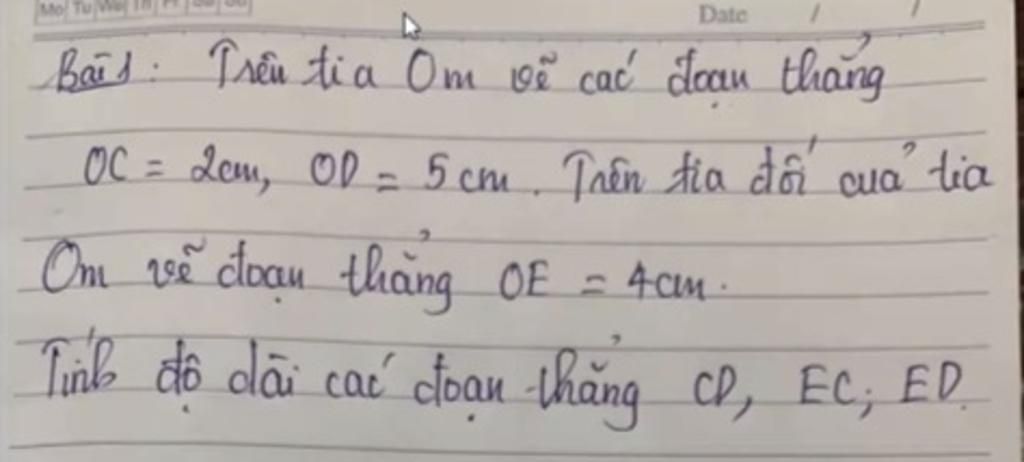 Mo Tu We Th Fr Sa Su
Date / /
Bài 1: Trên tia Om vẽ các đoạn thẳng
OC = 2cm, OD = 5cm. Trên tia đối của tia
Om vẽ đoạn thẳng OE = 4cm.
Tính độ dài các đoạn thẳng CD, EC; ED.